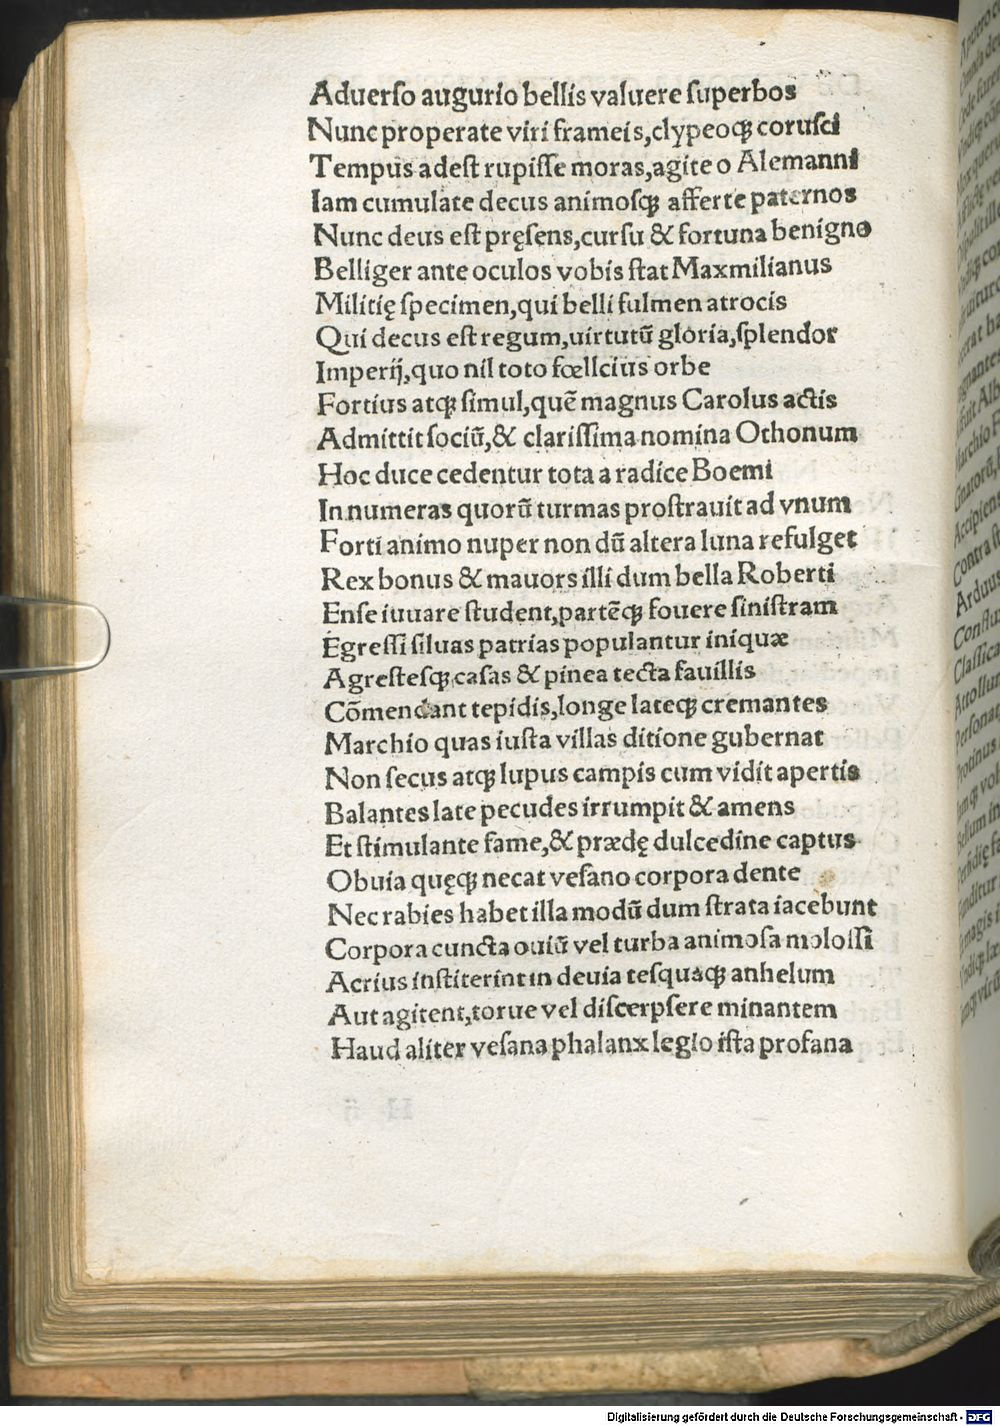 Aduerſo augurio bellis valuere ſuperbos
Nunc properate viri frameis,clypeoqꝫ coruſci
Tempus adeſt rupiſſe moras,agite o Alemanni
Iam cumulate decus animoſqꝫ afferte paternos
Nunc deus eſt pręſens,curſu & fortuna benigno
Belliger ante oculos vobis ſtat Maxmilianus
Militię ſpecimen,qui belli fulmen atrocis
Qui decus eſt regum,uirtutũ gloria,ſplendor
Imperij,quo nil toto fœlicius orbe
Fortius atqꝫ ſimul,quẽ magnus Carolus actis
Admittit ſociũ,& clariſſima nomina Othonum
Hoc duce cedentur tota a radice Boemi
Innumeras quorũ turmas proſtrauit ad vnum
Forti animo nuper non dũ altera luna refulget
Rex bonus & mauors illi dum bella Roberti
Enſe iuuare ſtudent,partẽqꝫ fouere ſiniſtram
Egreſſi ſiluas patrias populantur iniquæ
Agreſteſqꝫ caſas & pinea tecta fauillis
Cõmendant tepidis,longe lateqꝫ cremantes
Marchio quas iuſta villas ditione gubernat
Non ſecus atqꝫ lupus campis cum vidit apertis
Balantes late pecudes irrumpit & amens
Et ſtimulante fame,& prædę dulcedine captus
Obuia quęqꝫ necat veſano corpora dente
Nec rabies habet illa modũ dum ſtrata iacebunt
Corpora cuncta ouiũ vel turba animoſa moloiſſi
Acrius inſtiterint in deuia teſquaqꝫ anhelum
Aut agitent,torue vel diſcerpſere minantem
Haud aliter veſana phalanx legio iſta profana
Digitalisierung gefördert durch die Deutsche Forschungsgemeinschaft - DFG